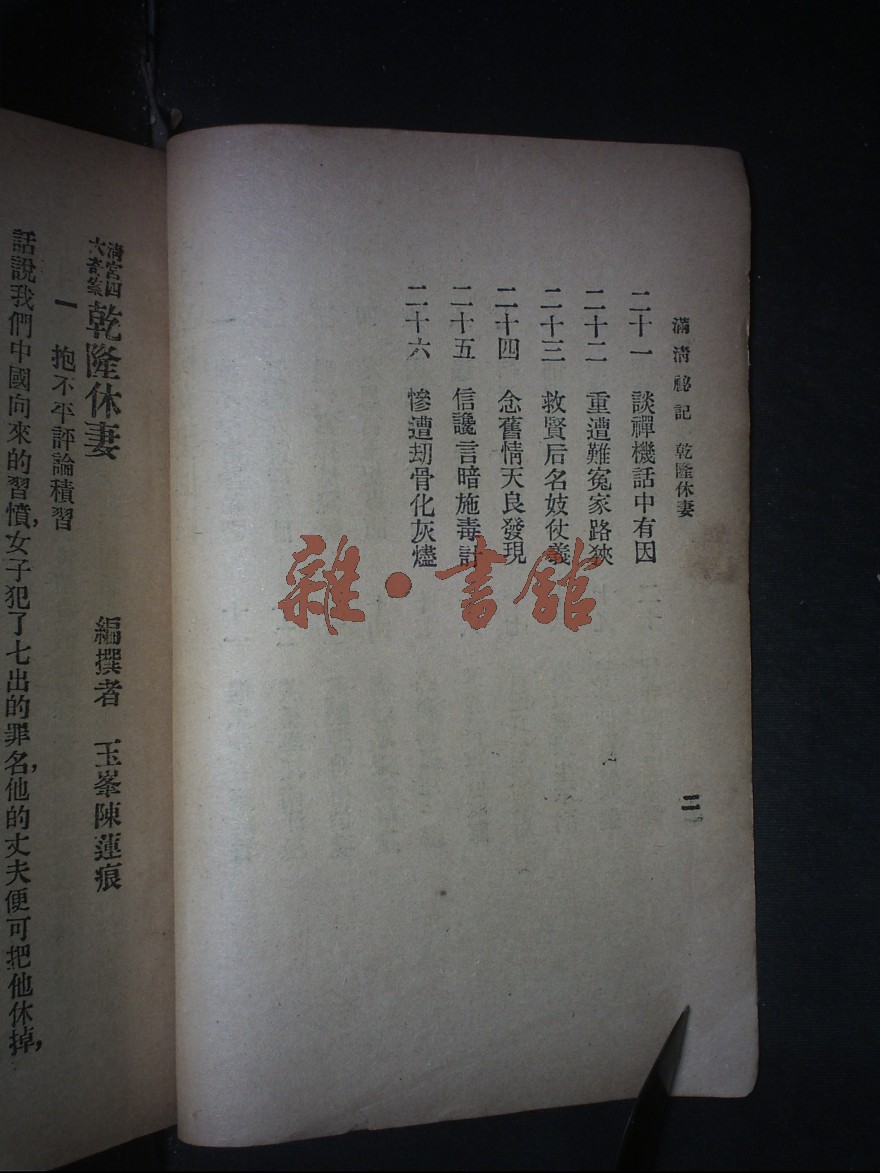 滿清祕記 乾隆休妻
二
二十一 談禪機話中有因
二十二 重遭難冤家路狹
二十三 救賢后名妓仗義
二十四 念舊情天良發現
二十五 信讒言暗施毒計
二十六 慘遭刧骨化灰燼
雜·書館
清宮四大奇案 乾隆休妻
編撰者 玉峯陳蓮痕
一 抱不平評論積習
話說我們中國向來的習慣,女子犯了七出的罪名,他的丈夫便可把他休掉,